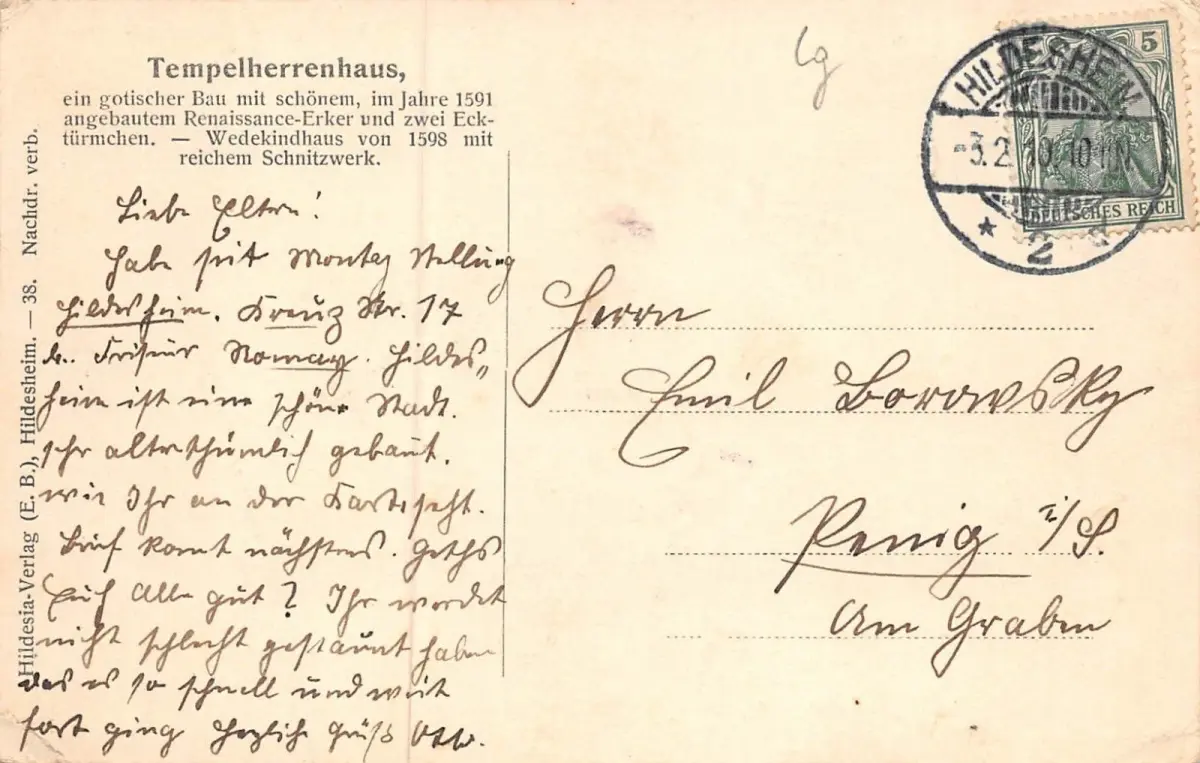 Tempelherrenhaus,
ein gotischer Bau mit schönem, im Jahre 1591
angebautem Renaissance-Erker und zwei Eck-
türmchen. — Wedekindhaus von 1598 mit
reichem Schnitzwerk.
Hildesia-Verlag (E. B.), Hildesheim. — 38. Nachdr. verb.
Liebe Eltern!
Habe seit Montag Stellung
Hildesheim. Kreuz Str. 17
b. Friseur Nomay. Hildes„
heim ist eine schöne Stadt.
sehr alterthümlich gebaut.
wie Ihr an der Karte seht.
Brief komt nächstens. Gehts
Euch Alle gut? Ihr werdet
nicht schlecht gestaunt haben
das es so schnell und weit
fort ging Herzliche Grüß Otto.
lg
HILDESHEIM
-3.2.10.10-11N
* 2 d
5
DEUTSCHES REICH
Herrn
Emil Borowsky
Penig i/S.
Am Graben